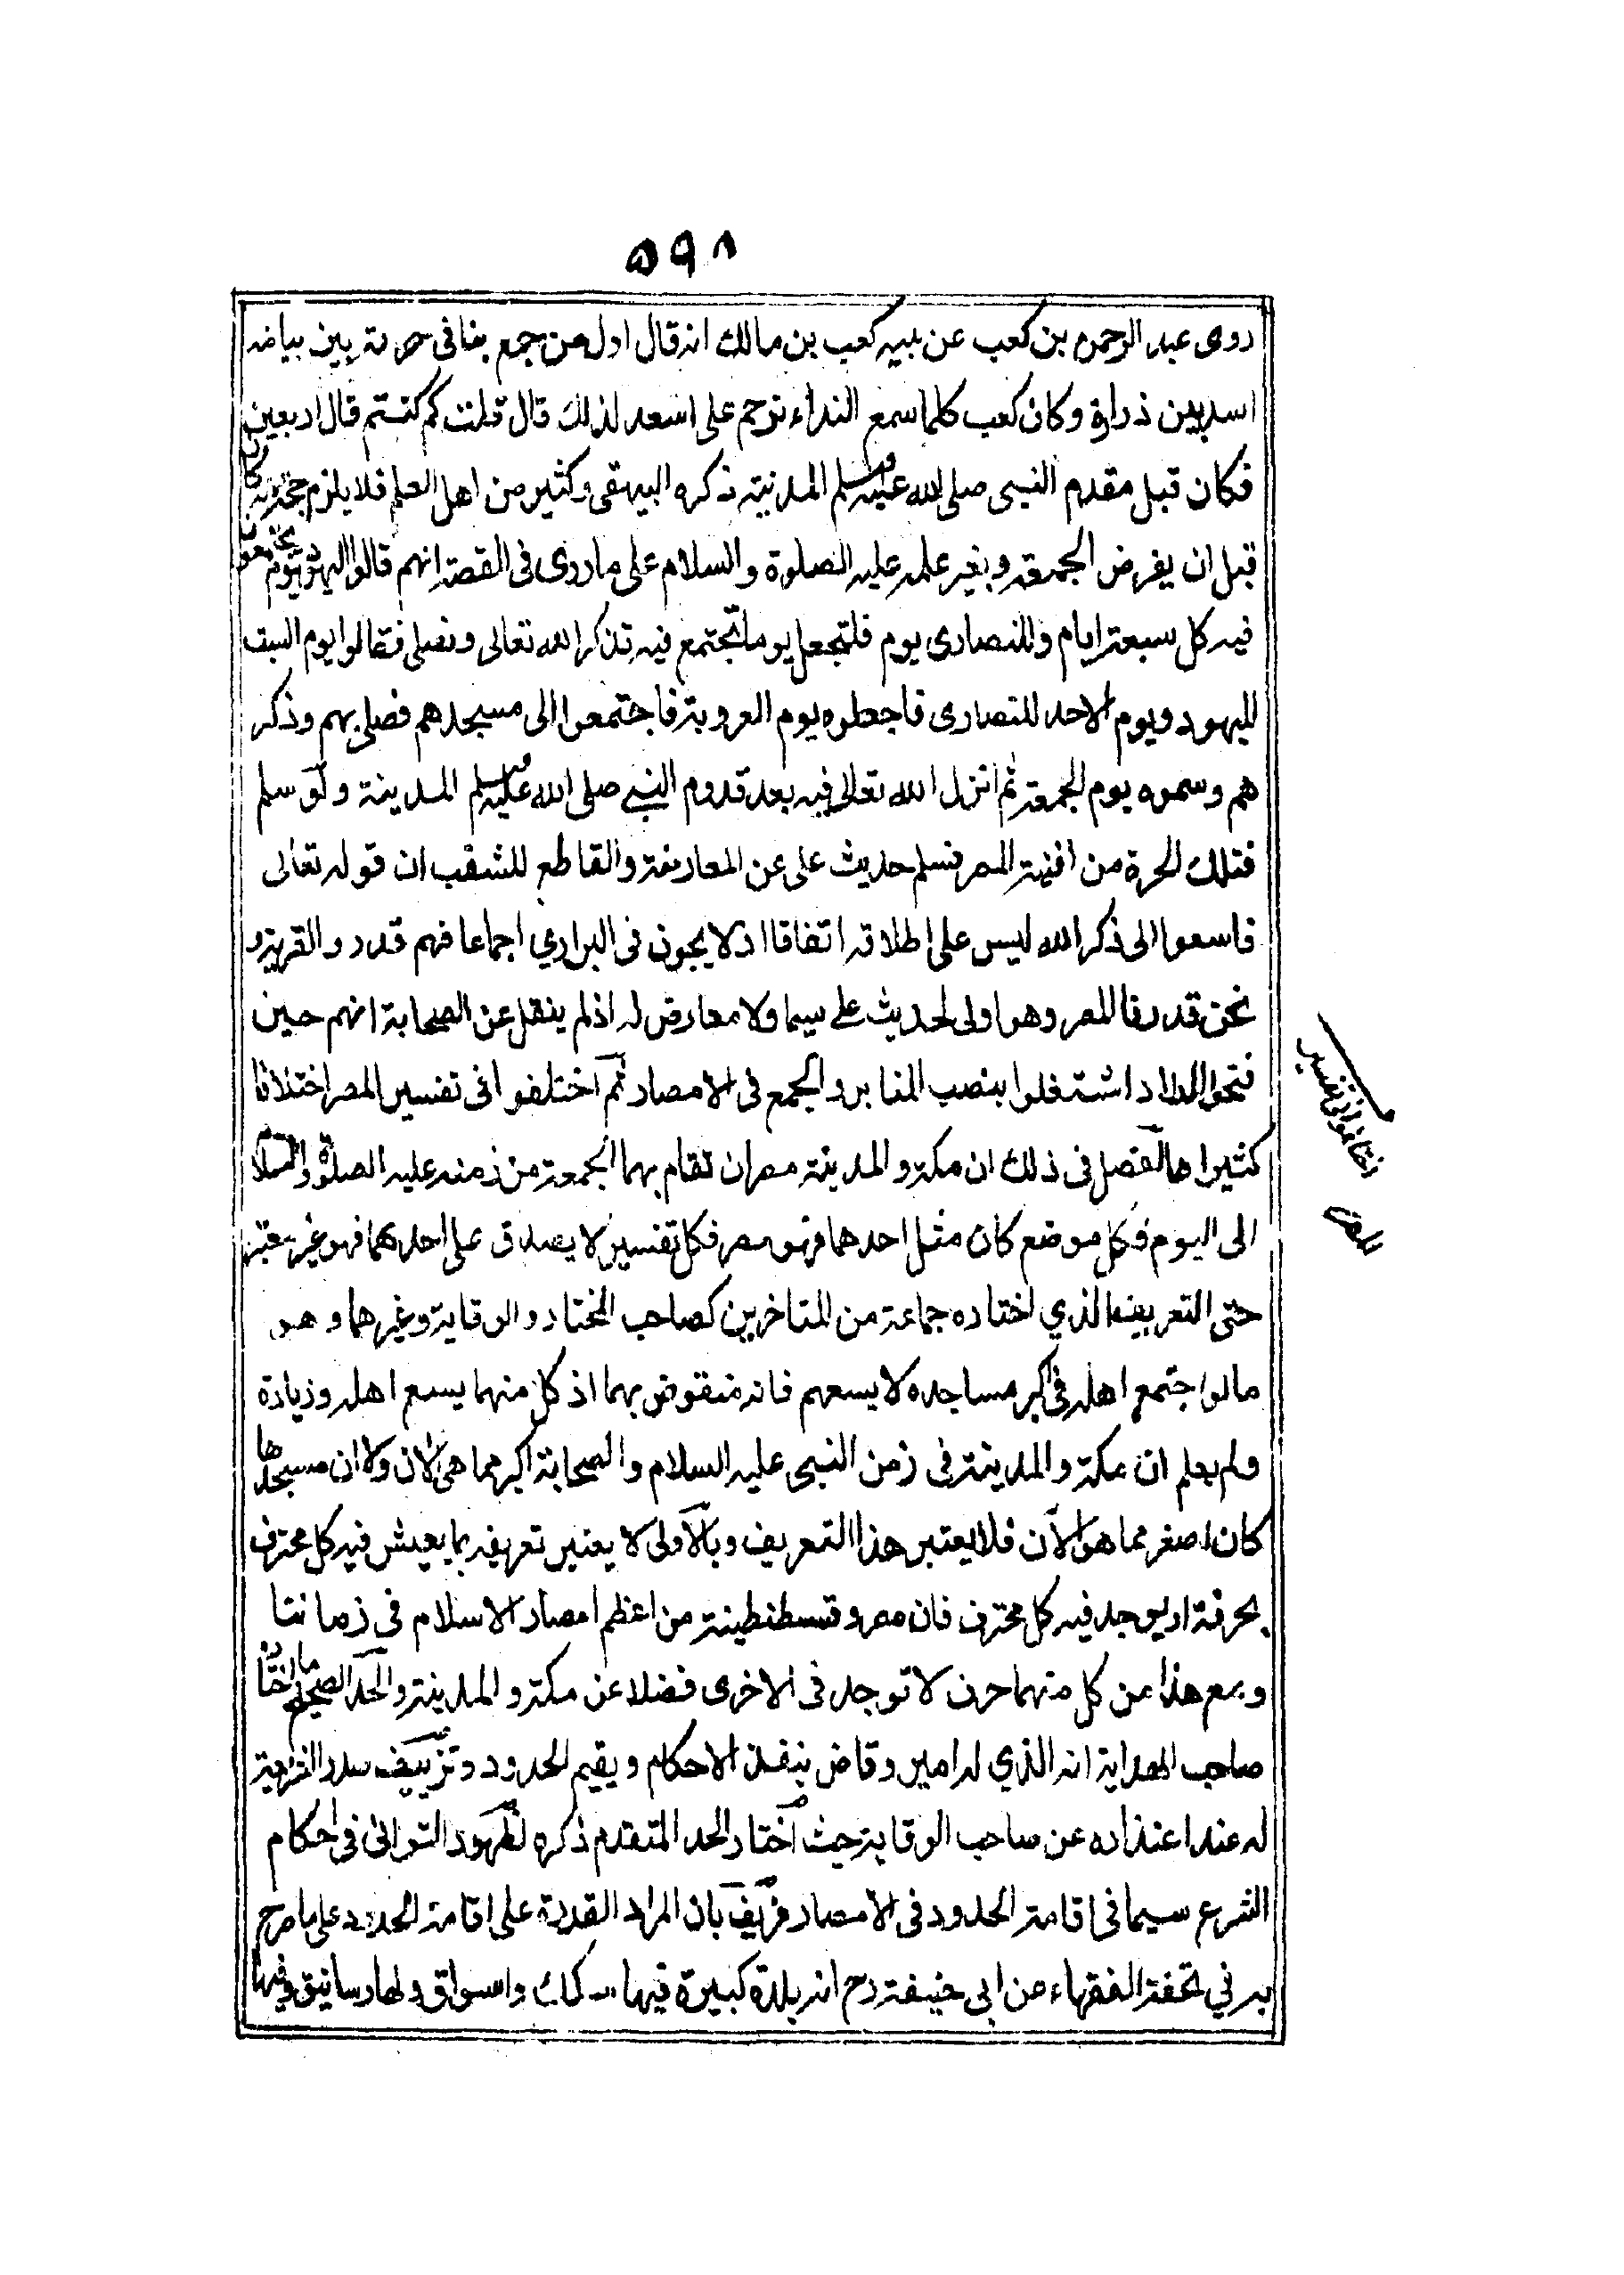 ٥٩٨
روى عبد الرحمن بن كعب عن ابيه كعب بن مالك انه قال اول من جمع بنا فى حرة بين بياضه
اسد بين زرارة وكان كعب كلما سمع النداء ترحم على اسعد لذلك قال قلت كم كنتم قال اربعين
فكان قبل مقدم النبى صلى الله عليه وسلم المدينة ذكره البيهقى وكثير من اهل العلم فلا يلزم حجة لانه كان
قبل ان يفرض الجمعة وبغير علمه عليه الصلوة والسلام على ما روى فى القصة انهم قالوا اليهود يوم يجتمعون
فيه كل سبعة ايام وللنصارى يوم فلنجعل يوما نجتمع فيه نذكر الله تعالى ونصلى فقالوا يوم السبت
لليهود ويوم الاحد للنصارى فاجعلوه يوم العروبة فاجتمعوا الى مسجدهم فصلى بهم وذكر
هم وسموه يوم الجمعة ثم انزل الله تعالى فيه بعد قدوم النبي صلى الله عليه وسلم المدينة ولو سلم
فتلك الحرة من افنية المصر فسلم حديث على عن المعارضة والقاطع للشغب ان قوله تعالى
فاسعوا الى ذكر الله ليس على اطلاقه اتفاقا اذ لا يجوز فى البراري اجماعا فهم قدروا القرية و
نحن قدرنا المصر وهو اولى لحديث على سيما ولا معارض له اذ لم ينقل عن الصحابة انهم حين
فتحوا البلاد اشتغلوا بنصب المنابر والجمع فى الامصار ثم اختلفوا فى تفسير المصر اختلافا
كثيرا هالفصل فى ذلك ان مكة والمدينة مصران تقام بهما الجمعة من زمنه عليه الصلوة والسلام
الى اليوم فكل موضع كان مثل احدهما فهو مصر فكل تفسير لا يصدق على احدهما فهو غير معتبر
حتى التعريف الذي اختاره جماعة من المتاخرين كصاحب المختار والوقاية وغيرهما وهو
ما لو اجتمع اهله فى اكبر مساجده لا يسعهم فانه منقوض بهما اذ كل منهما يسع اهله وزيادة
ولم يعلم ان مكة والمدينة فى زمن النبى عليه السلام والصحابة اكبر مما هى الآن ولا ان مسجدها
كان اصغر مما هو الآن فلا يعتبر هذا التعريف وبالاولى لا يعتبر تعريفه بما يعيش فيه كل محترف
بحرفته او يوجد فيه كل محترف فان مصر وقسطنطينة من اعظم امصار الاسلام فى زماننا
ومع هذا من كل منهما حرف لا توجد فى الاخرى فضلا عن مكة والمدينة والحد الصحيح ما اختاره
صاحب الهداية انه الذي له امير وقاض ينفذ الاحكام ويقيم الحدود وتزييف صدر الشريعة
له عند اعتذاره عن صاحب الوقاية حيث اختار الحد المتقدم ذكره لظهور التوانى فى احكام
الشرع سيما فى اقامة الحدود فى الامصار مزيف بان المراد القدرة على اقامة الحدود على ما صرح
به في تحفة الفقهاء من ابى حنيفة رح انه بلدة كبيرة فيها سكك واسواق ولها رساتيق وفيها
اختلفوا فى تفسير
المصر